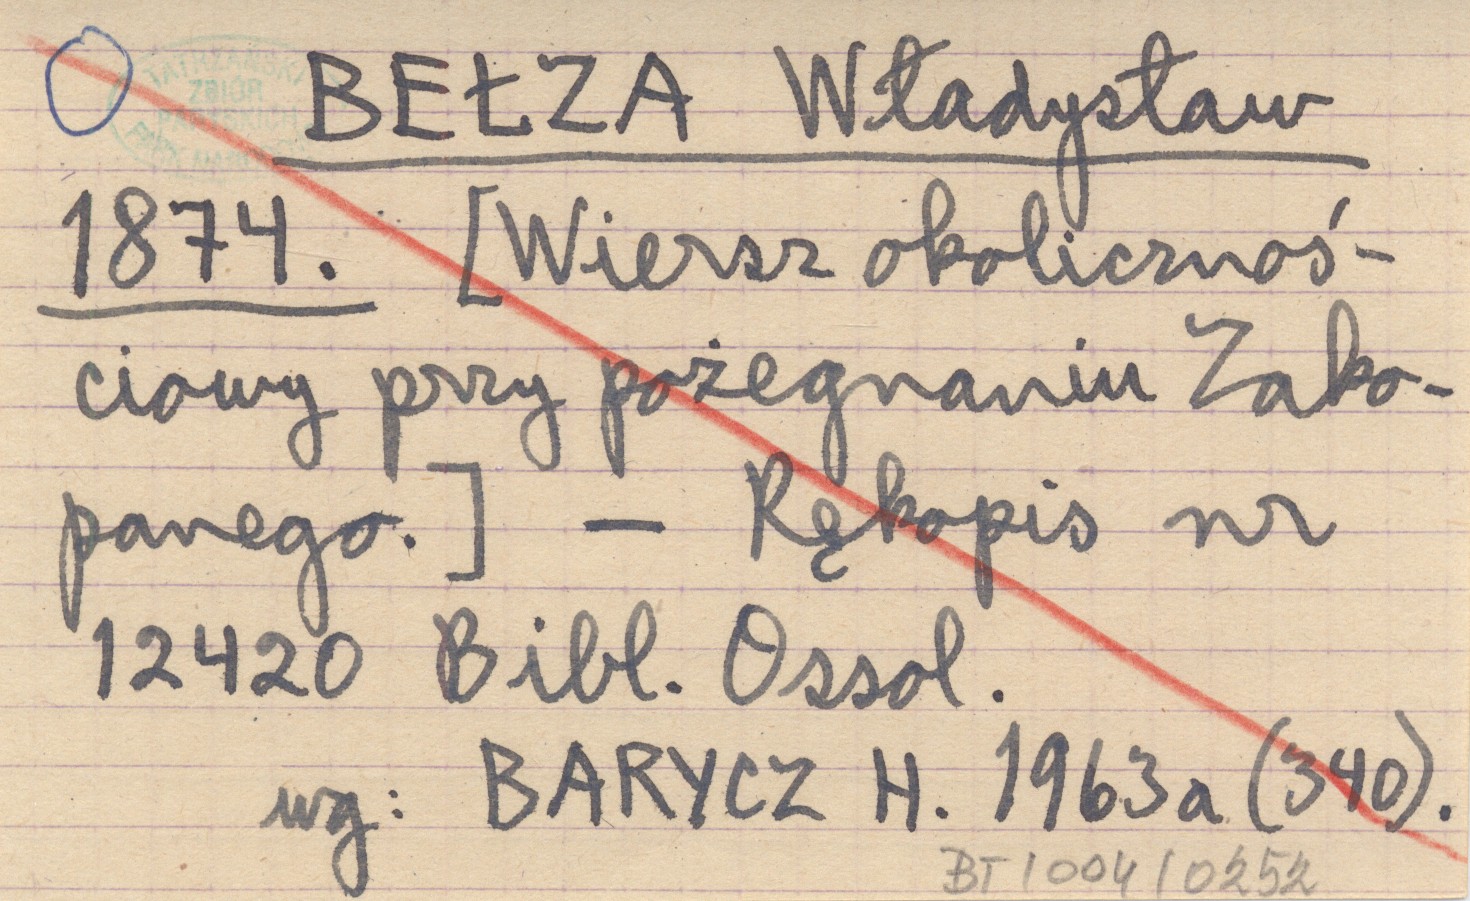 TATRZAŃSKI
ZBIÓR
BEŁZA Władysław
1874. [Wiersz okolicznoś-
ciowy przy pożegnaniu Zako-
panego.] — Rękopis nr
12420 Bibl. Ossol.
wg: BARYCZ H. 1963a (340).
BT/004/0252